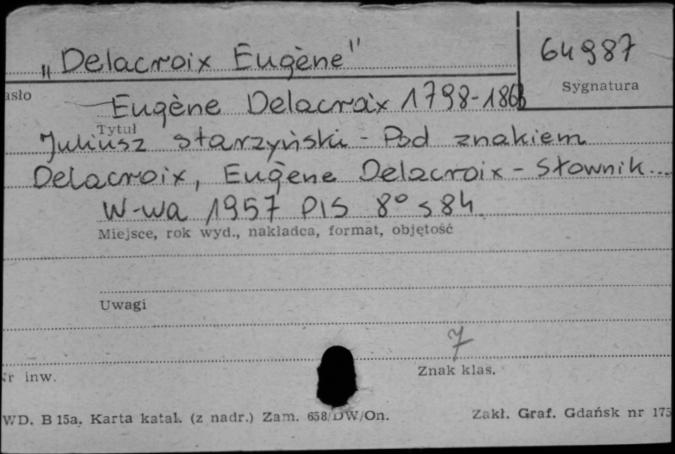 „Delacroix Eugène"
64987
Sygnatura
asło
Eugène Delacroix 1798-1863
Tytuł
Juliusz Starzyński - Pod znakiem
Delacroix, Eugène Delacroix - Słownik...
W-wa 1957 PIS 8° s 84
Miejsce, rok wyd., nakładca, format, objętość
Uwagi
7
Nr inw.
Znak klas.
WD. B 15a. Karta katal. (z nadr.) Zam. 658/DW/On.
Zakł. Graf. Gdańsk nr 175